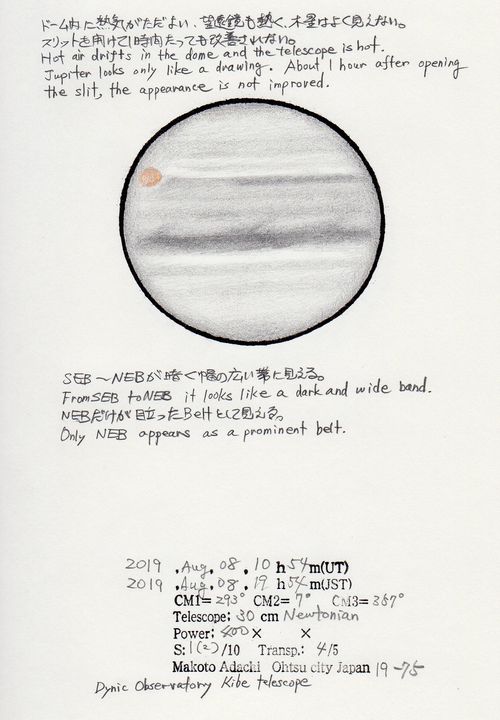 ドーム内に熱気がただよい、望遠鏡も熱く、木星はよく見えない。
スリットを開けて1時間たっても改善されない。
Hot air drifts in the dome and the telescope is hot.
Jupiter looks only like a drawing. About 1 hour after opening
the slit, the appearance is not improved.
SEB～NEBが暗く幅の広い帯に見える。
From SEB to NEB it looks like a dark and wide band.
NEBだけが目立ったBeltとして見える。
Only NEB appears as a prominent belt.
2019 . Aug. 08 . 10 h 54 m(UT)
2019 . Aug. 08 . 19 h 54 m(JST)
CM1= 293° CM2= 7° CM3= 357°
Telescope: 30 cm Newtonian
Power: 400 × ×
S: 1(2)/10 Transp.: 4/5
Makoto Adachi Ohtsu city Japan 19-75
Dynic Observatory Kibe telescope